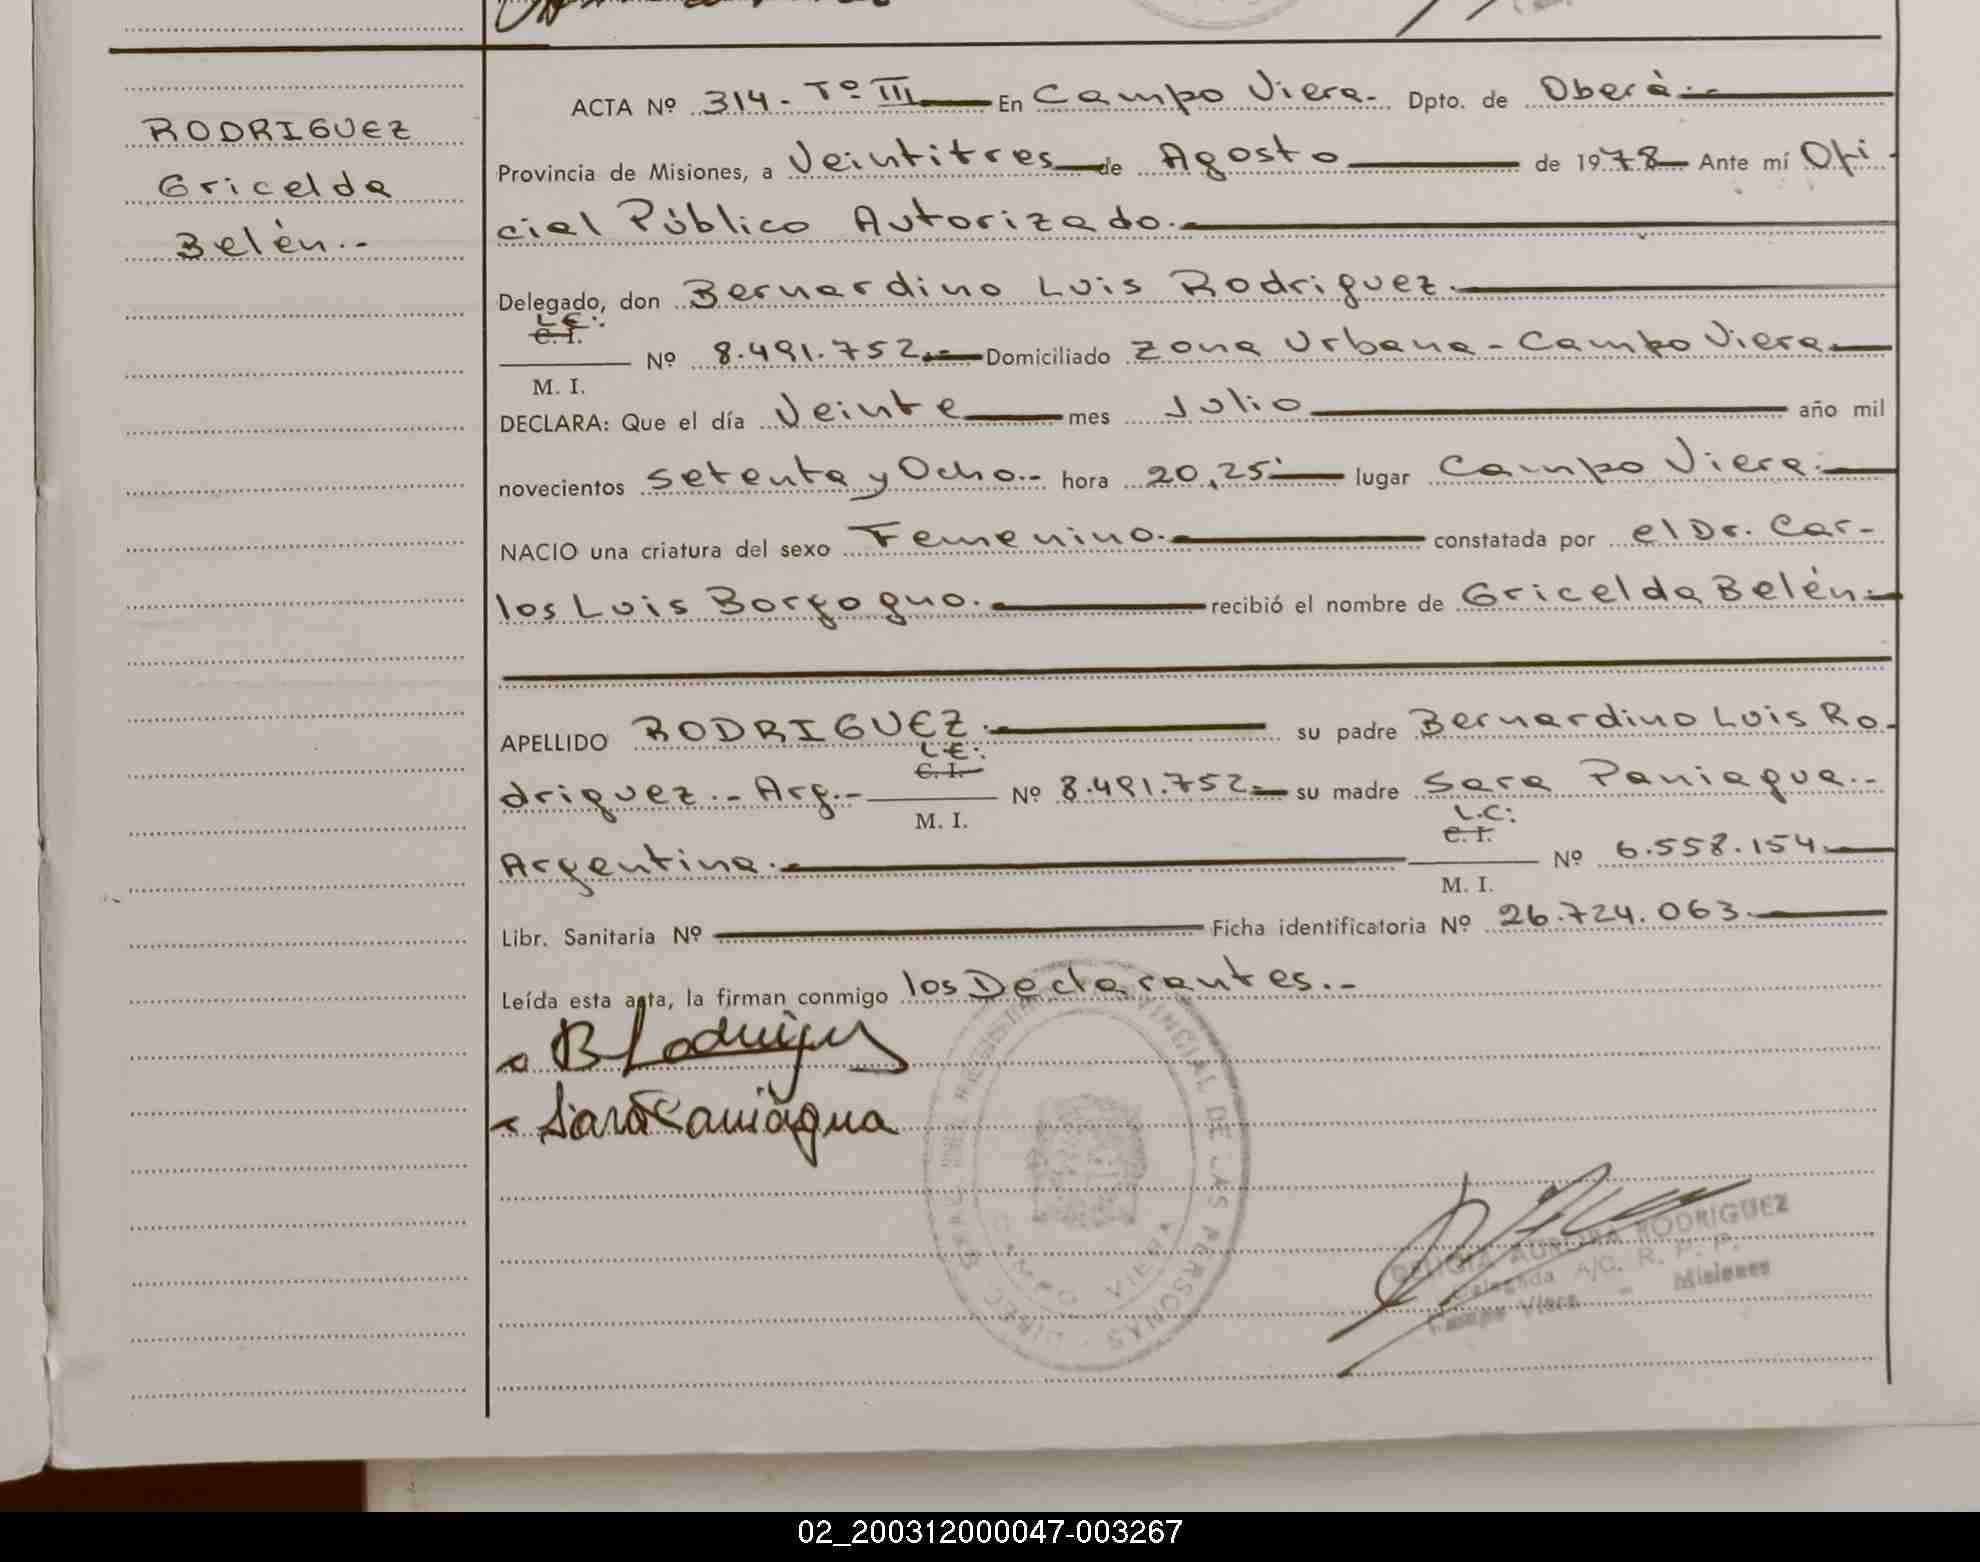 RODRIGUEZ
Gricelda
Belén.-
ACTA Nº 314.- Tº III En Campo Viera.- Dpto. de Oberà.-
Provincia de Misiones, a Veintitres de Agosto de 1978 Ante mí Ofi-
cial Público Autorizado.-
Delegado, don Bernardino Luis Rodriguez.-
L.E:
C. I.
Nº 8.491.752.- Domiciliado Zona Urbana - Campo Viera
M. I.
DECLARA: Que el día Veinte mes Julio año mil
novecientos Setenta y Ocho.- hora 20,25 lugar Campo Viera.-
NACIO una criatura del sexo Femenino.- constatada por el Dr. Car-
los Luis Borgogno.- recibió el nombre de Gricelda Belén.-
APELLIDO RODRIGUEZ.- su padre Bernardino Luis Ro-
L.E:
C. I.
driguez.- Arg.- Nº 8.491.752.- su madre Sara Paniagua.-
M. I.
L.C:
C. I.
Argentina.- Nº 6.558.154.-
M. I.
Libr. Sanitaria Nº Ficha identificatoria Nº 26.724.063.-
Leída esta acta, la firman conmigo los Declarantes.-
B Rodriguez
Sara Paniagua
DIREC. GRAL. DEL REGISTRO PROVINCIAL DE LAS PERSONAS
CAMPO VIERA
AURORA RODRIGUEZ
Delegada A/C. R. P. P.
Campo Viera - Misiones
02_200312000047-003267